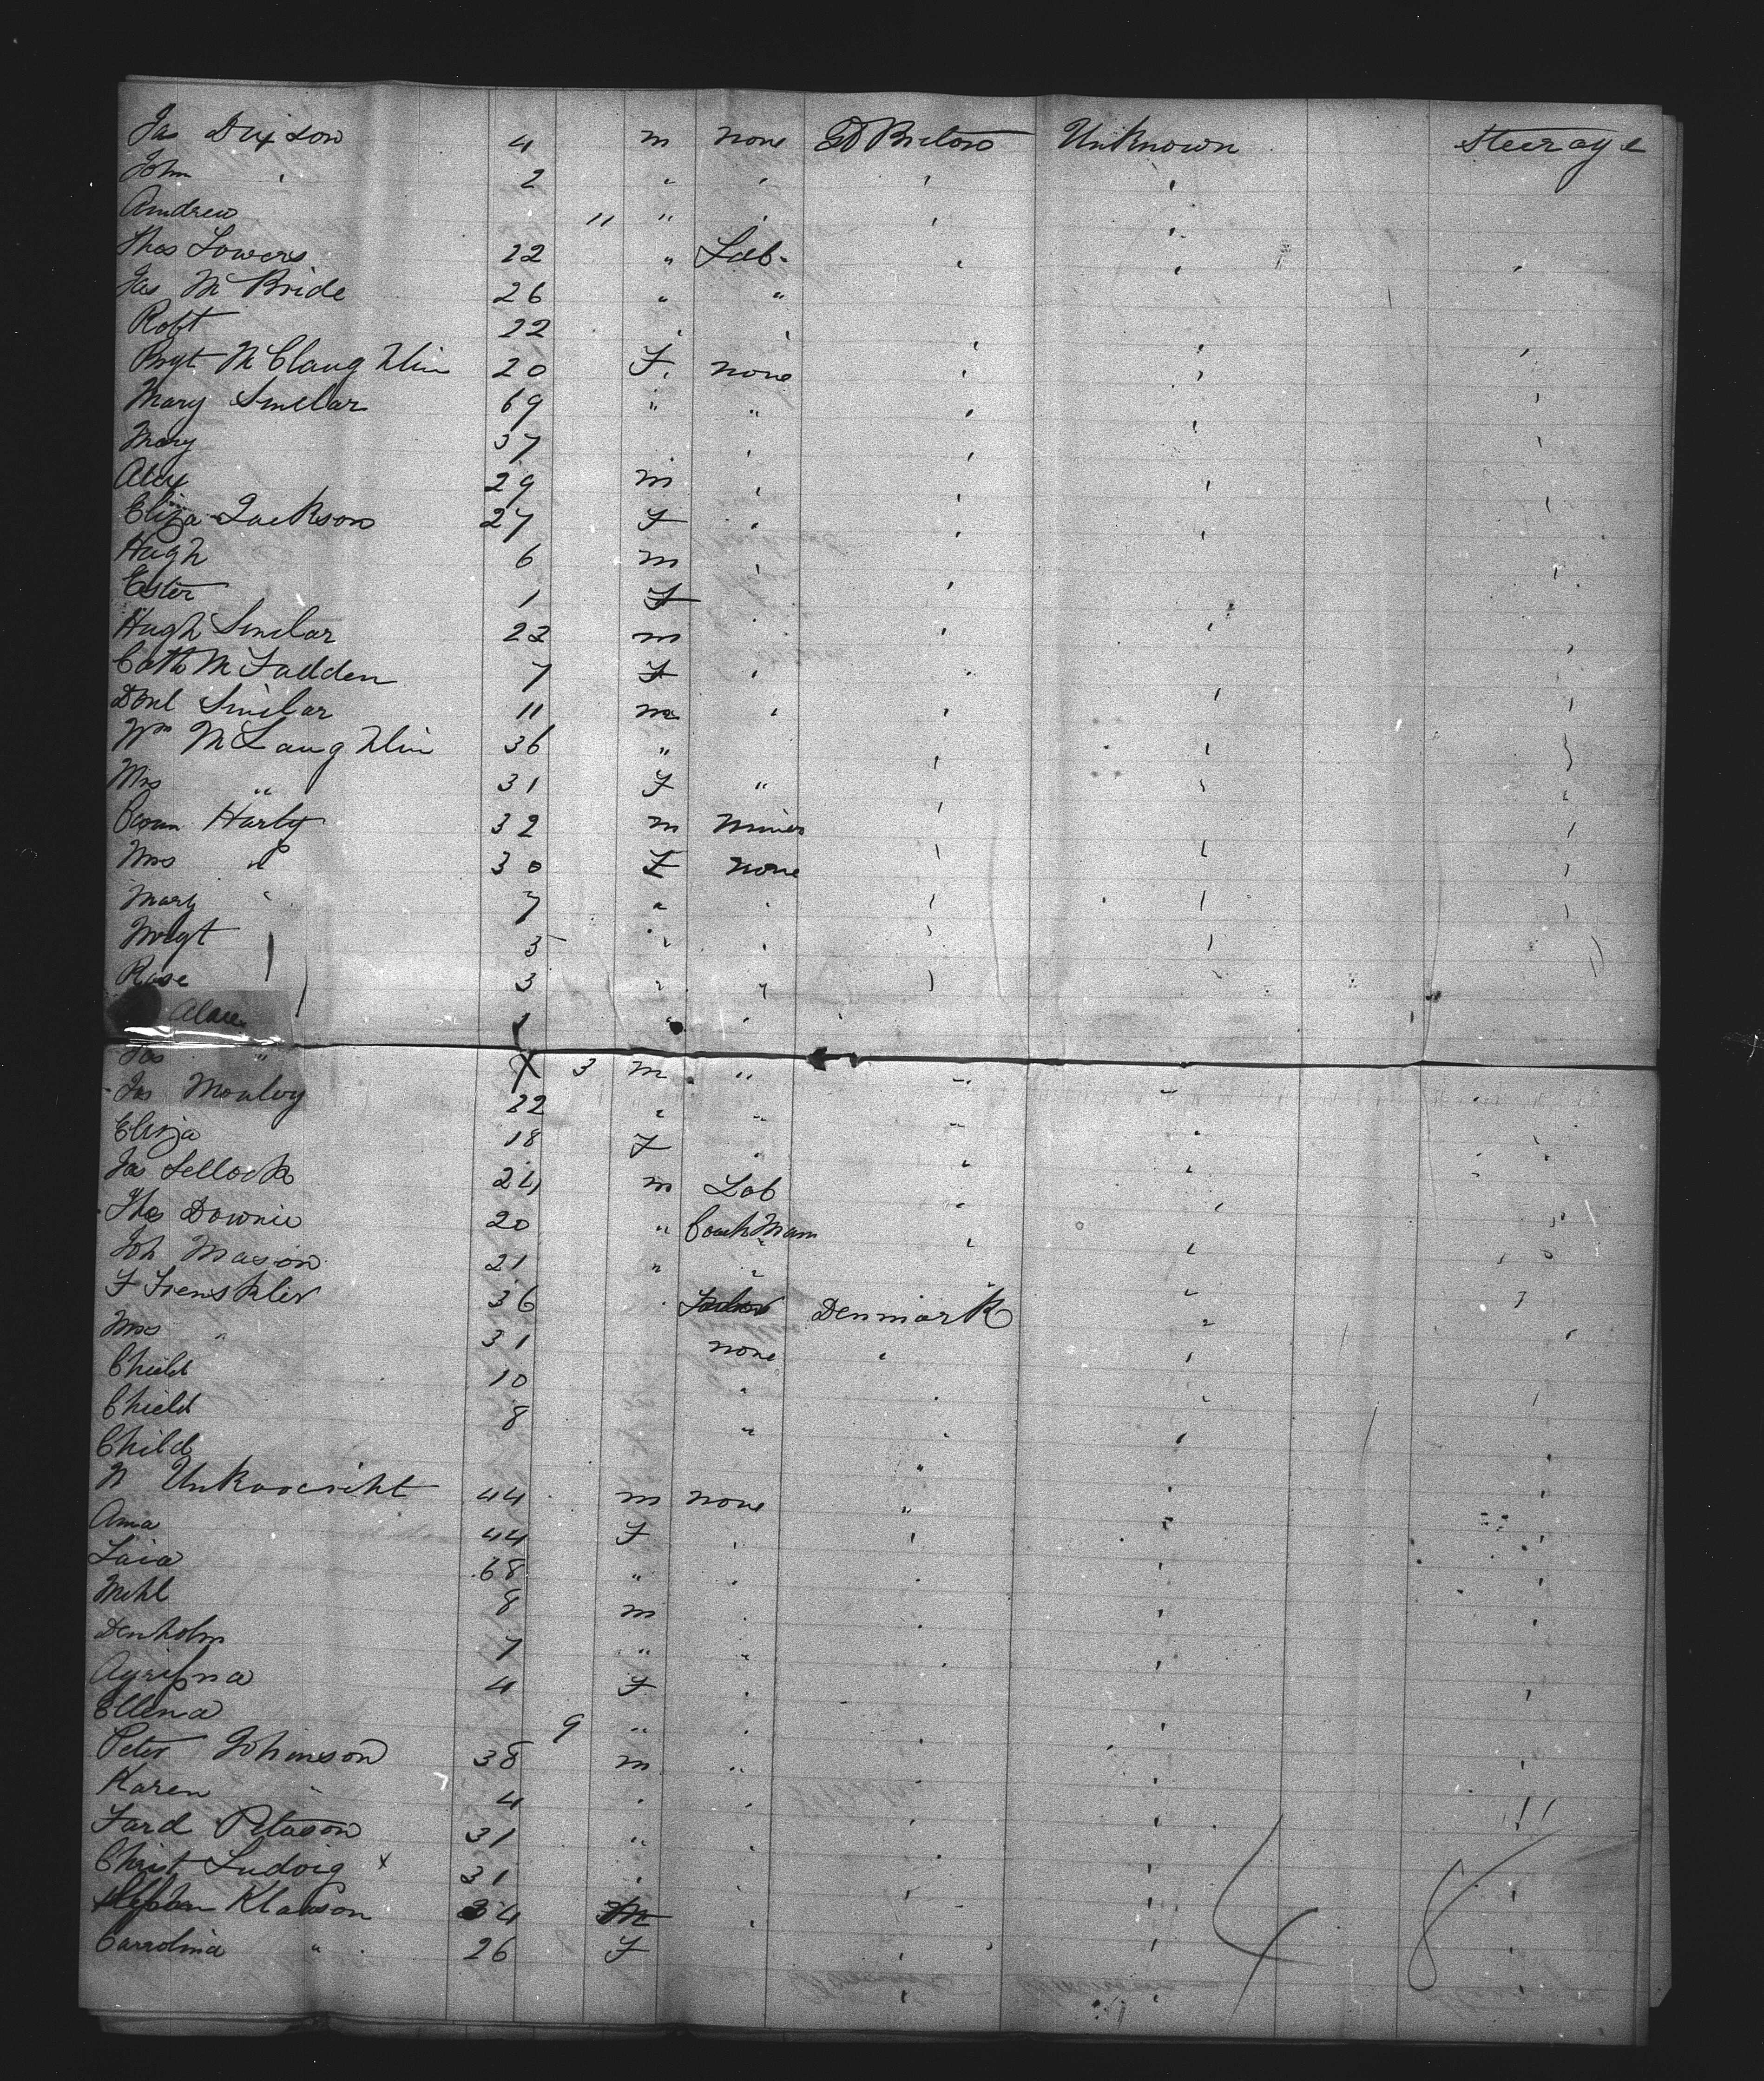 Jas Dixson 4 m none Gt Britain Unknown Steerage
John " 2 " " " "
Andrew 11 " " " "
Thos Lowers 22 " Lab- " " "
Jas McBride 26 " "
Robt 22 " " " " "
Brgt McClaughlin 20 F. none " "
Mary Sinclar 69 " " " " "
Mary 37 " " "
Alex 29 m " " " "
Eliza Jackson 27 F " " "
Hugh 6 m " " "
Ester 1 F
Hugh Sinclar 22 m " " " "
Cath McFadden 7 F " " "
Danl Sinclar 11 m " " "
Wm McLaughlin 36 " " " "
Mrs " 31 F " " "
Harty 32 m miner " "
Mrs " 30 F none " "
Mary " 7 " " " " "
Mrgt 5 " " " " "
Rose 3 " " "
1 " "
Jas " X 3 m " " "
Jas 22 " " " "
Eliza 18 F " " " "
Jas Sellock 24 m Lab " " "
Thos Downie 20 " CoachMan " " "
Joh Mason 21 " " " "
F 36 " Denmark " "
Mrs " 31 none " "
Child 10 " " " "
Child 8 " " "
Child " "
N 44 m none " " "
Ana 44 F " " " "
Laia 68 " " " " "
Mehl 8 m " " " "
Denholm 7 " " " "
4 F " " "
Ellena 9 " " " "
Peter Johnson 38 m " " " "
Karen " 4 " " " " "
Fard Petason 31 " " " "
Christ Ludvig x 31 " " " "
Klauson 34 M " " "
Carrolina " 26 F " "
48